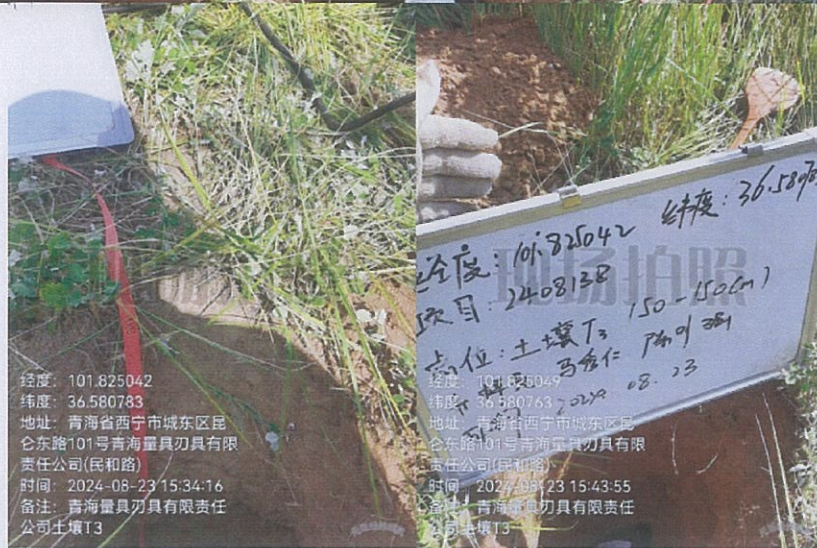 经度：101.825042
纬度：36.580783
地址：青海省西宁市城东区昆
仑东路101号青海量具刃具有限
责任公司(民和路)
时间：2024-08-23 15:34:16
备注：青海量具刃具有限责任
公司土壤T3
现场拍照
经度：101.825042 纬度：36.5807
项目：2408138
点位：土壤T3
马秀仁
2024 08.23
经度：101.825049
纬度：36.580763
地址：青海省西宁市城东区昆
仑东路101号青海量具刃具有限
责任公司(民和路)
时间：2024-08-23 15:43:55
备注：青海量具刃具有限责任
公司土壤T3